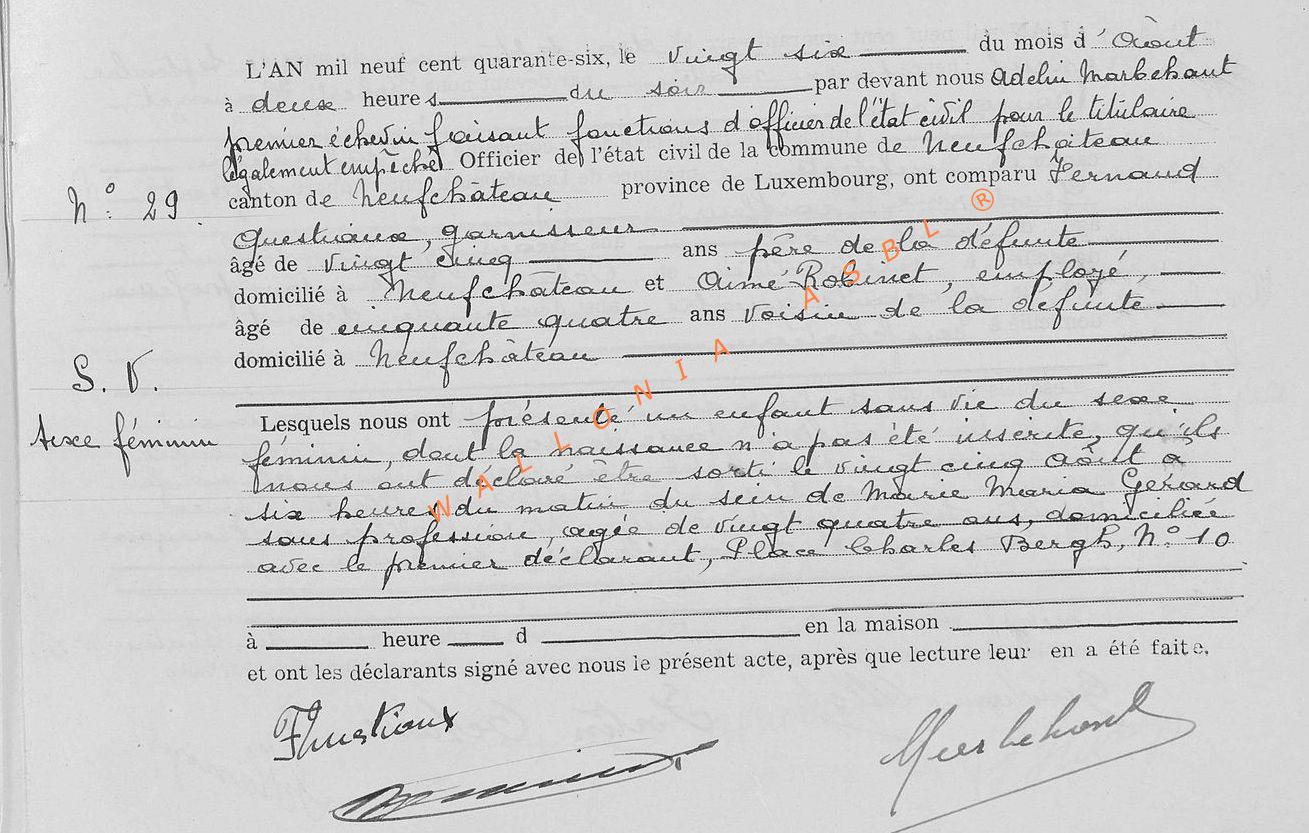 L'AN mil neuf cent quarante-six, le vingt six du mois d'Août
à deux heures du soir par devant nous Adelin Marbehant
premier échevin faisant fonctions d'officier de l'état civil pour le titulaire
légalement empêché Officier de l'état civil de la commune de Neufchâteau
N° 29 canton de Neufchâteau province de Luxembourg, ont comparu Fernand
Questiaux, garnisseur
âgé de vingt cinq ans père de la défunte
domicilié à Neufchâteau et Aimé Robinet, employé,
âgé de cinquante quatre ans voisin de la défunte
domicilié à Neufchâteau
S. V.
sexe féminin
Lesquels nous ont présenté un enfant sans vie du sexe
féminin, dont la naissance n'a pas été inscrite, qu'ils
nous ont déclaré être sorti le vingt cinq Août à
six heures du matin du sein de Marie Maria Gérard
sans profession, agée de vingt quatre ans, domiciliée
avec le premier déclarant, Place Charles Bergh, N° 10
à heure d en la maison
et ont les déclarants signé avec nous le présent acte, après que lecture leur en a été faite.
WALLONIA ASBL ®